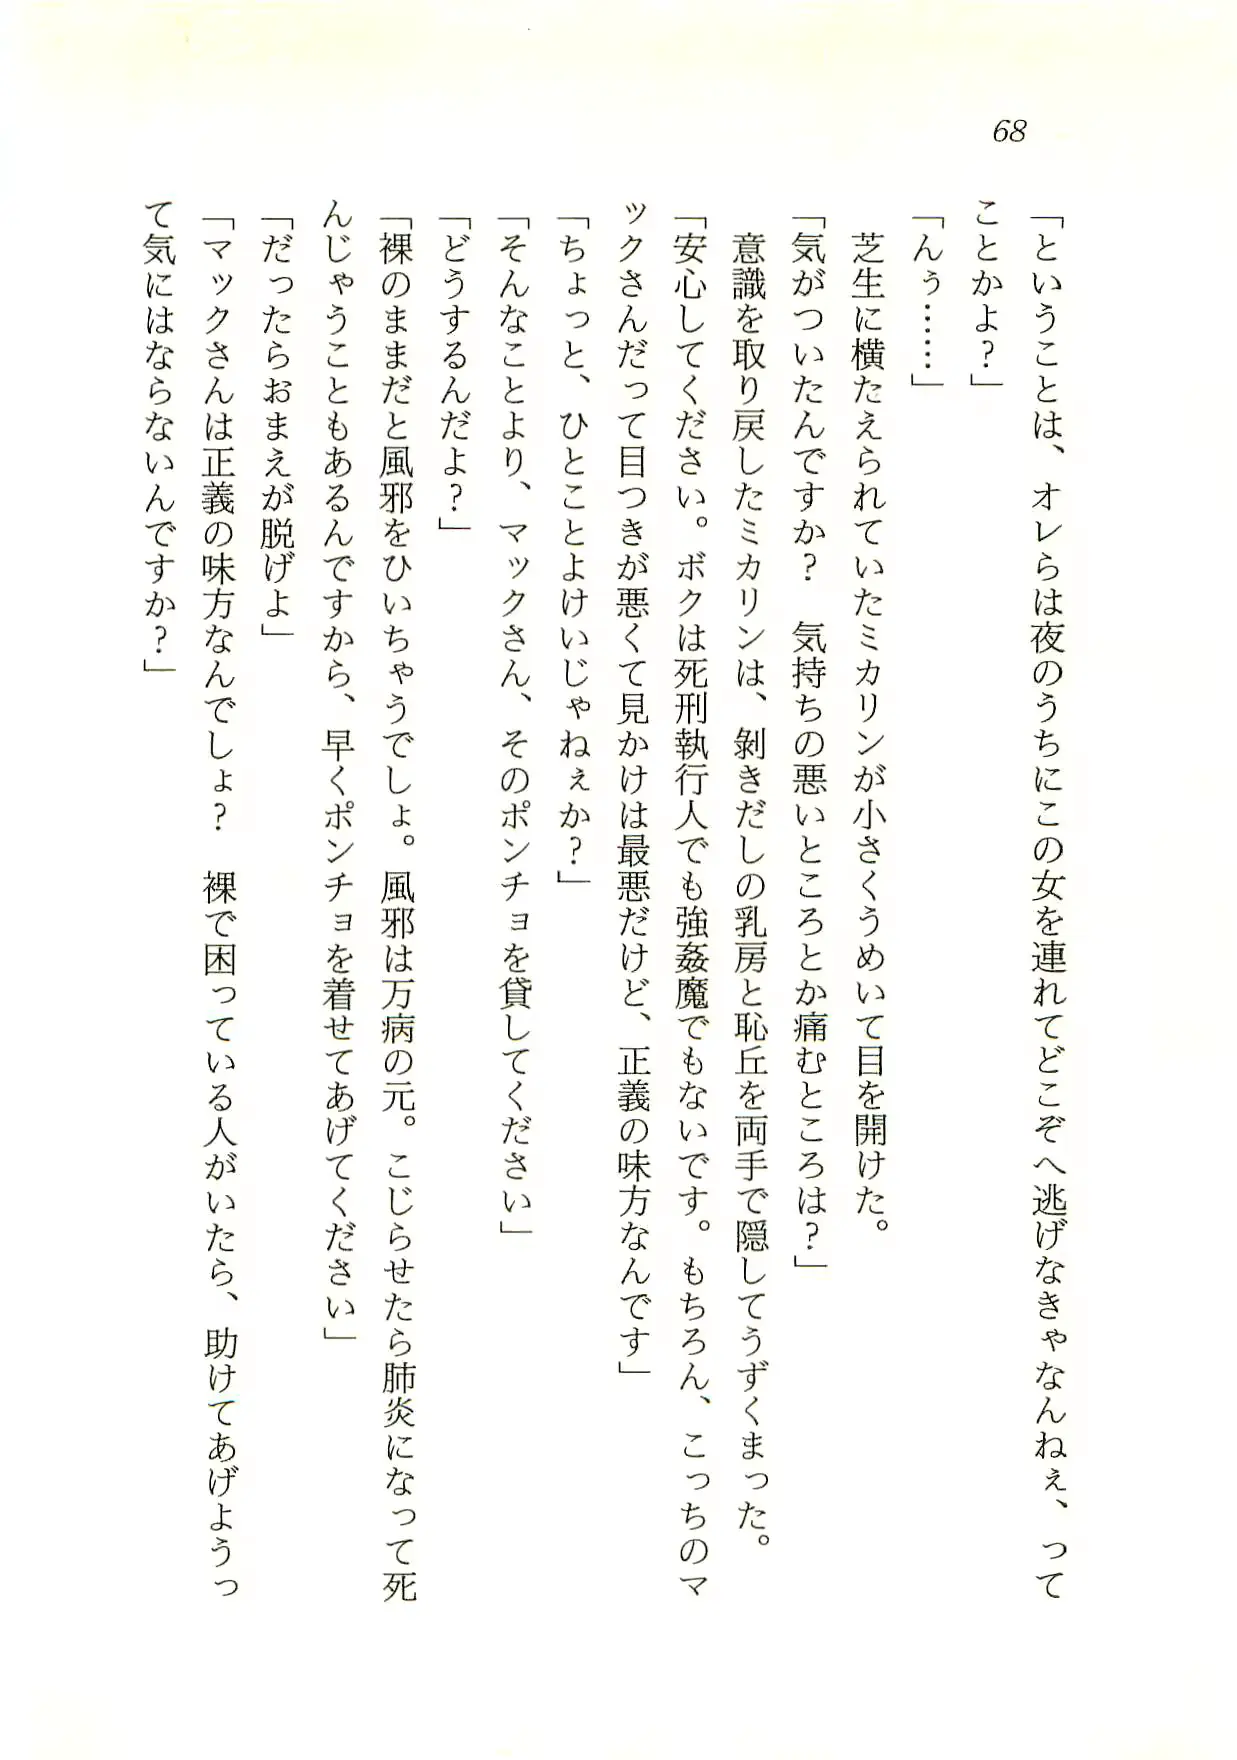 68
「ということは、オレらは夜のうちにこの女を連れてどこぞへ逃げなきゃなんねぇ、って
ことかよ？」
「んぅ……」
芝生に横たえられていたミカリンが小さくうめいて目を開けた。
「気がついたんですか？　気持ちの悪いところとか痛むところは？」
意識を取り戻したミカリンは、剝きだしの乳房と恥丘を両手で隠してうずくまった。
「安心してください。ボクは死刑執行人でも強姦魔でもないです。もちろん、こっちのマ
ックさんだって目つきが悪くて見かけは最悪だけど、正義の味方なんです」
「ちょっと、ひとことよけいじゃねぇか？」
「そんなことより、マックさん、そのポンチョを貸してください」
「どうするんだよ？」
「裸のままだと風邪をひいちゃうでしょ。風邪は万病の元。こじらせたら肺炎になって死
んじゃうこともあるんですから、早くポンチョを着せてあげてください」
「だったらおまえが脱げよ」
「マックさんは正義の味方なんでしょ？　裸で困っている人がいたら、助けてあげようっ
て気にはならないんですか？」